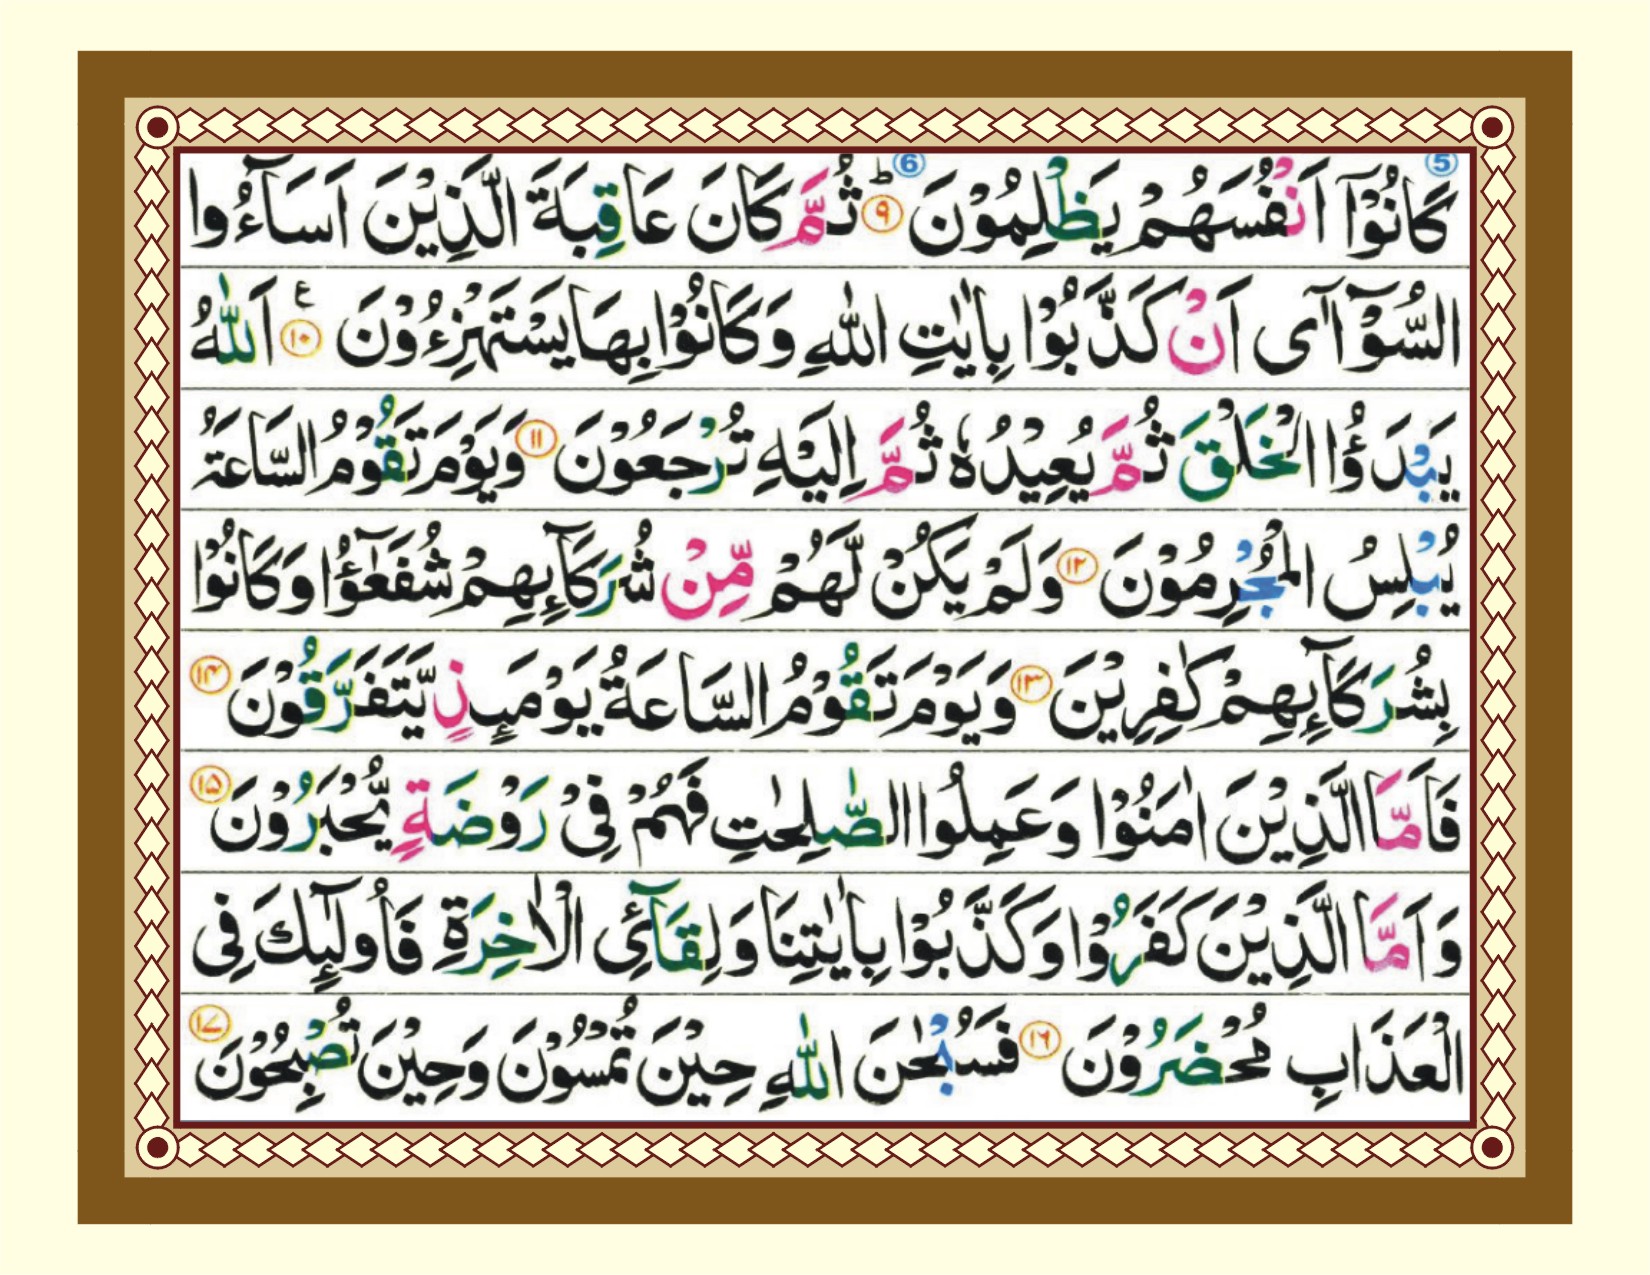 كَانُوْۤا اَنْفُسَهُمْ يَظْلِمُوْنَ ؕ ۹ ثُمَّ كَانَ عَاقِبَةَ الَّذِيْنَ اَسَآءُوا
السُّوْٓاٰۤى اَنْ كَذَّبُوْا بِاٰيٰتِ اللّٰهِ وَكَانُوْا بِهَا يَسْتَهْزِءُوْنَ ۱۰ ع اَللّٰهُ
يَبْدَؤُا الْخَلْقَ ثُمَّ يُعِيْدُهٗ ثُمَّ اِلَيْهِ تُرْجَعُوْنَ ۱۱ وَيَوْمَ تَقُوْمُ السَّاعَةُ
يُبْلِسُ الْمُجْرِمُوْنَ ۱۲ وَلَمْ يَكُنْ لَّهُمْ مِّنْ شُرَكَآىِٕهِمْ شُفَعٰٓؤُا وَكَانُوْا
بِشُرَكَآىِٕهِمْ كٰفِرِيْنَ ۱۳ وَيَوْمَ تَقُوْمُ السَّاعَةُ يَوْمَىِٕذٍ يَّتَفَرَّقُوْنَ ۱۴
فَاَمَّا الَّذِيْنَ اٰمَنُوْا وَعَمِلُوا الصّٰلِحٰتِ فَهُمْ فِيْ رَوْضَةٍ يُّحْبَرُوْنَ ۱۵
وَاَمَّا الَّذِيْنَ كَفَرُوْا وَكَذَّبُوْا بِاٰيٰتِنَا وَلِقَآئِ الْاٰخِرَةِ فَاُولٰٓىِٕكَ فِى
الْعَذَابِ مُحْضَرُوْنَ ۱۶ فَسُبْحٰنَ اللّٰهِ حِيْنَ تُمْسُوْنَ وَحِيْنَ تُصْبِحُوْنَ ۱۷